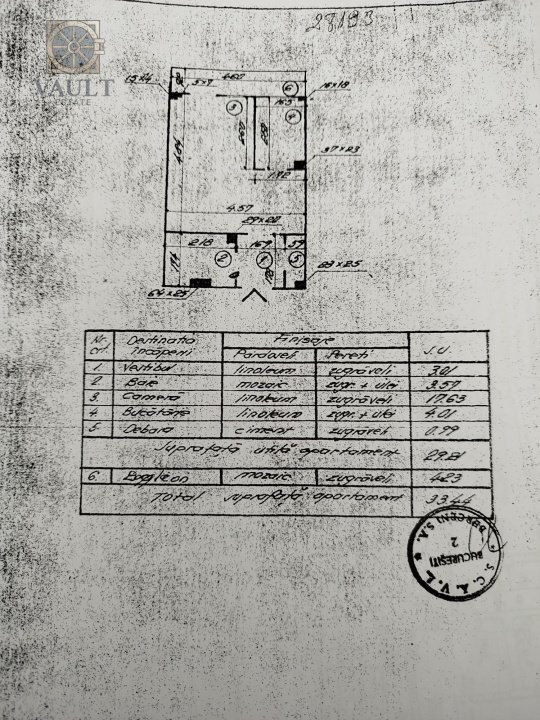 28193
VAULT
ESTATE
15x14
5x7
460
16x18
6
165
3
4
37x23
192
457
29x22
218
169
59
2
1
5
64x25
23x25
Nr. crt. Destinatia încăperii Finisaje S.U.
Pardoseli Pereti
1. Vestibul linoleum zugrăveli 3.01
2 Baie mozaic zugr. + ulei 3.57
3 Cameră linoleum zugrăveli 17.63
4 Bucătărie linoleum zugr. + ulei 4.01
5 Debara ciment zugrăveli 0.99
Suprafață utilă apartament 29.21
6. mozaic zugrăveli 4.23
Total suprafață apartament 33.44
S.C. A.V.L. BERCENI S.A.
BUCUREȘTI
2